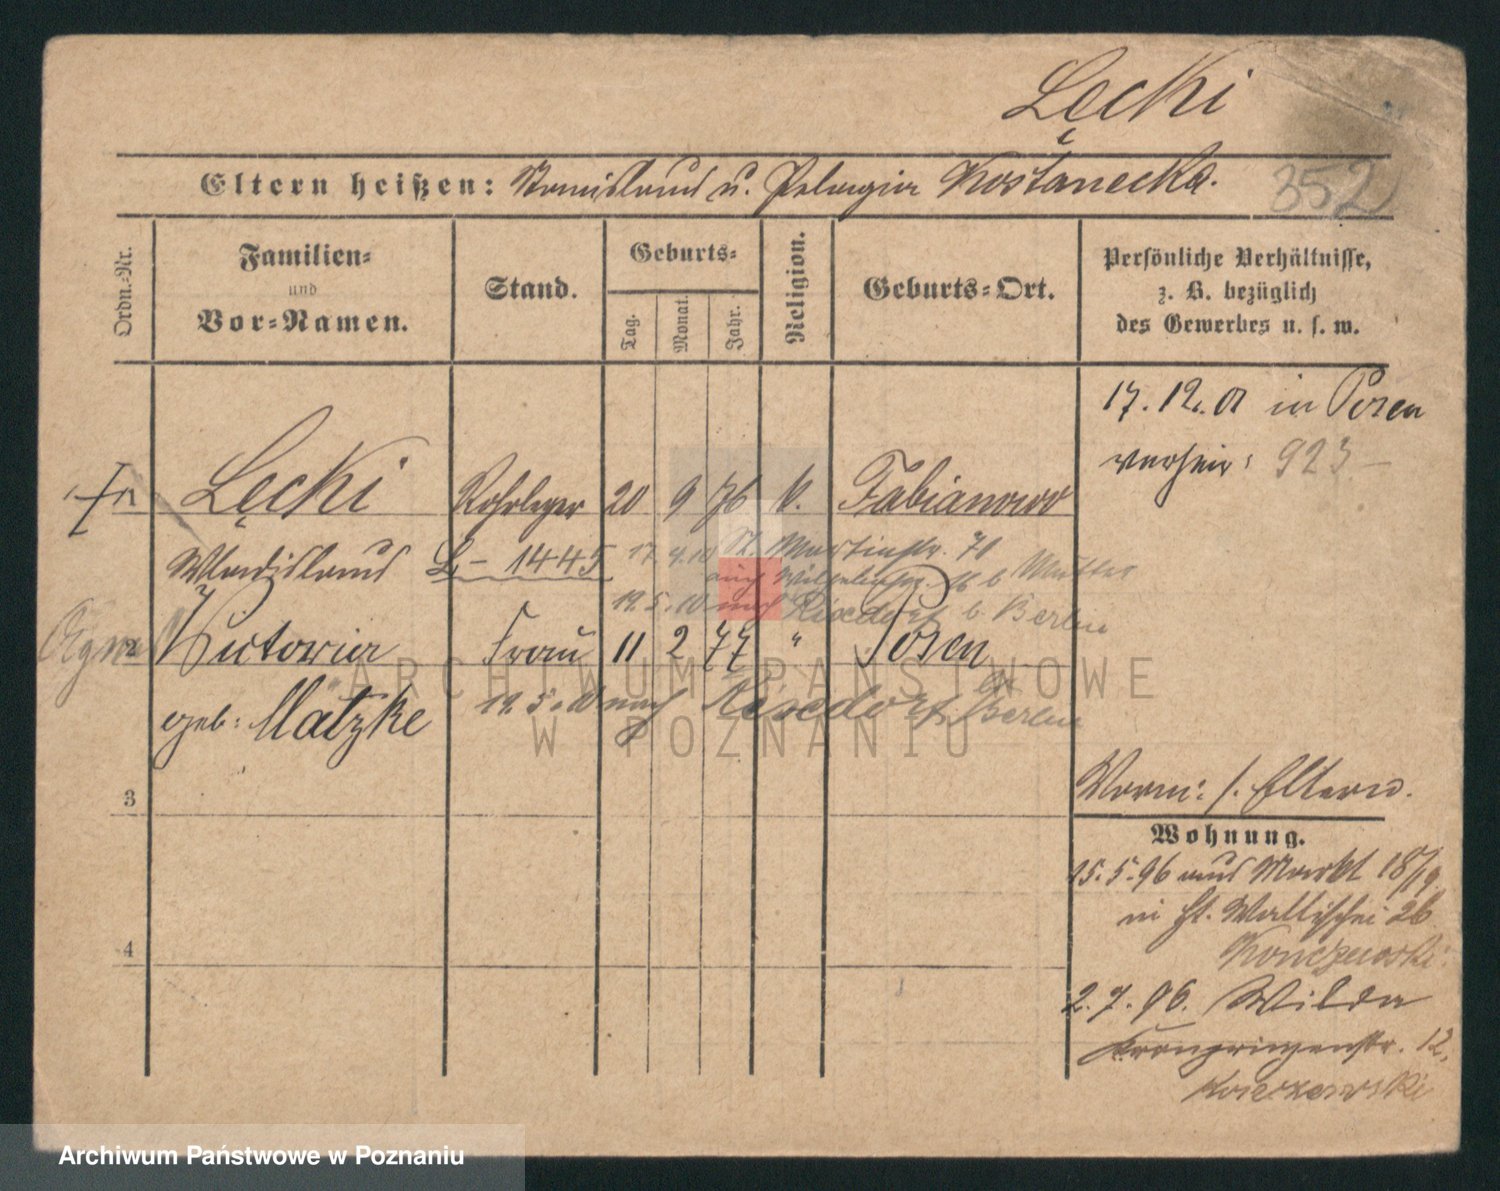 Łęcki
352
Eltern heißen: Stanislaus u. Pelagia Kostanecka.
Ordn.-Nr.
Familien-
und
Vor-Namen.
Stand.
Geburts-
Tag.
Monat.
Jahr.
Religion.
Geburts-Ort.
Persönliche Verhältnisse,
z. B. bezüglich
des Gewerbes u. s. w.
17. 12. 01 in Posen
verheir: 923
Łęcki Rohrleger 20 9 76 k. Fabianowo
Wladislaus L - 1445 17. 4. 10 St. Martinstr. 70
Mutter
19. 5. 10 nach Rixdorf b Berlin
2 Victoria Frau 11 2 77 " Posen
geb: Matzke 19. 5. 10 nach Rixdorf Berlin
3
4
Vorm: s. Eltern.
Wohnung.
15. 5. 96 aus Markt 18/19
in St. Wallischei 26
Konczewski
2. 7. 96. Wilda
Kronprinzenstr. 12,
ARCHIWUM PAŃSTWOWE
W POZNANIU
Archiwum Państwowe w Poznaniu